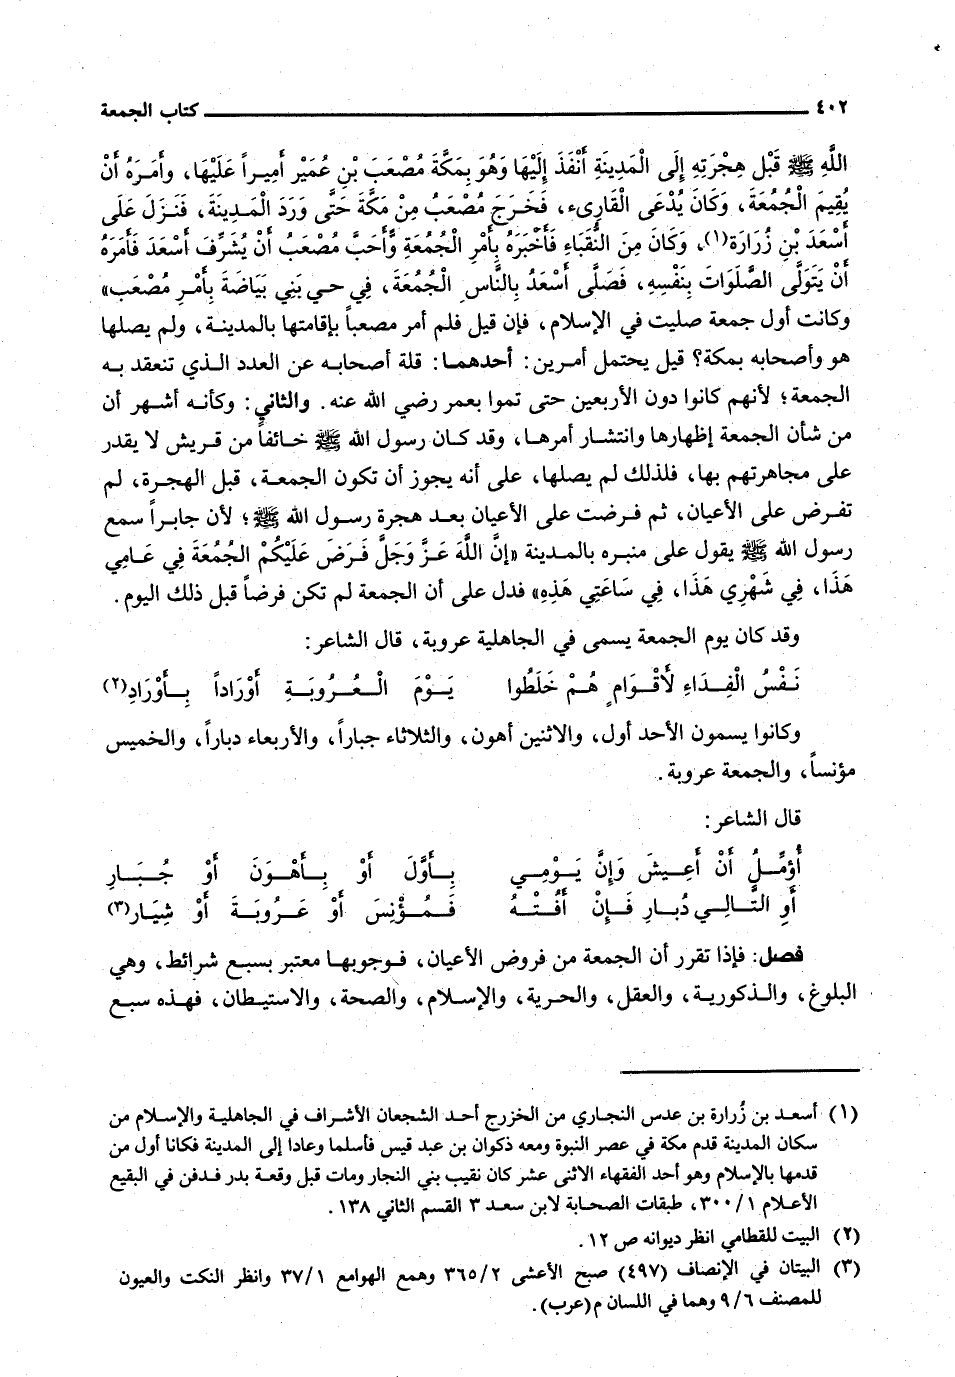 ٤٠٢ كتاب الجمعة
اللَّهِ ﷺ قَبْل هِجْرَتِهِ إِلَى الْمَدِينَةِ أَنْفَذَ إِلَيْهَا وَهُوَ بِمَكَّةَ مُصْعَبَ بْنِ عُمَيْر أَمِيراً عَلَيْهَا، وأَمَرَهُ أَنْ
يُقِيمَ الْجُمُعَةَ، وَكَانَ يُدْعَى الْقَارِىء، فَخَرَج مُصْعَبُ مِنْ مَكَّةَ حَتَّى وَرَدَ الْمَدِينَةَ، فَنَزَل عَلَى
أَسْعَدَ بْنِ زُرَارَة(١)، وَكَانَ مِنَ النُّقَبَاءِ فَأَخْبَرَهُ بِأَمْرِ الْجُمُعَةِ وَأَحَبَّ مُصْعَبُ أَنْ يُشَرِّفَ أَسْعَدَ فَأَمَرَهُ
أَنْ يَتَوَلَّى الصَّلَوَاتَ بِنَفْسِهِ، فَصَلَّى أَسْعَدُ بِالنَّاسِ الْجُمُعَةَ، فِي حي بَنِي بَيَاضَةَ بِأَمْرِ مُصْعَب»
وكانت أول جمعة صليت في الإسلام، فإن قيل فلم أمر مصعباً بإقامتها بالمدينة، ولم يصلها
هو وأصحابه بمكة؟ قيل يحتمل أمرين: أحدهما: قلة أصحابه عن العدد الذي تنعقد به
الجمعة؛ لأنهم كانوا دون الأربعين حتى تموا بعمر رضي الله عنه. والثاني: وكأنه أشهر أن
من شأن الجمعة إظهارها وانتشار أمرها، وقد كان رسول الله ﷺ خائفاً من قريش لا يقدر
على مجاهرتهم بها، فلذلك لم يصلها، على أنه يجوز أن تكون الجمعة، قبل الهجرة، لم
تفرض على الأعيان، ثم فرضت على الأعيان بعد هجرة رسول الله ﷺ؛ لأن جابراً سمع
رسول الله ﷺ يقول على منبره بالمدينة «إنَّ اللَّهَ عَزَّ وَجَلَّ فَرَضَ عَلَيْكُمْ الْجُمُعَةَ فِي عَامِي
هَذَا، فِي شَهْرِي هَذَا، فِي سَاعَتِي هَذِهِ» فدل على أن الجمعة لم تكن فرضاً قبل ذلك اليوم.
وقد كان يوم الجمعة يسمى في الجاهلية عروبة، قال الشاعر:
نَفْسُ الْفِدَاءِ لَأَقْوَامٍ هُمْ خَلَطُوا يَوْمَ الْعُرُوبَةِ أَوْرَاداً بِأَوْرَادِ(٢)
وكانوا يسمون الأحد أول، والاثنين أهون، والثلاثاء جباراً، والأربعاء دباراً، والخميس
مؤنساً، والجمعة عروبة.
قال الشاعر:
أُؤمِّلُ أَنْ أَعِيشَ وَإِنَّ يَوْمِي بِأَوَّلَ أَوْ بِأَهْوَنَ أَوْ جُبَارِ
أَوِ التَّالِي دُبارِ فَإِنْ أَفُتْهُ فَمُؤْنِسَ أَوْ عَرُوبَةَ أَوْ شِيَار(٣)
فصل: فإذا تقرر أن الجمعة من فروض الأعيان، فوجوبها معتبر بسبع شرائط، وهي
البلوغ، والذكورية، والعقل، والحرية، والإسلام، والصحة، والاستيطان، فهذه سبع
(١) أسعد بن زُرارة بن عدس النجاري من الخزرج أحد الشجعان الأشراف في الجاهلية والإسلام من
سكان المدينة قدم مكة في عصر النبوة ومعه ذكوان بن عبد قيس فأسلما وعادا إلى المدينة فكانا أول من
قدمها بالإسلام وهو أحد الفقهاء الاثنى عشر كان نقيب بني النجار ومات قبل وقعة بدر فدفن في البقيع
الأعلام ١/ ٣٠٠، طبقات الصحابة لابن سعد ٣ القسم الثاني ١٣٨.
(٢) البيت للقطامي انظر ديوانه ص ١٢.
(٣) البيتان في الإنصاف (٤٩٧) صبح الأعشى ٢/ ٣٦٥ وهمع الهوامع ١/ ٣٧ وانظر النكت والعيون
للمصنف ٦/ ٩ وهما في اللسان م(عرب).